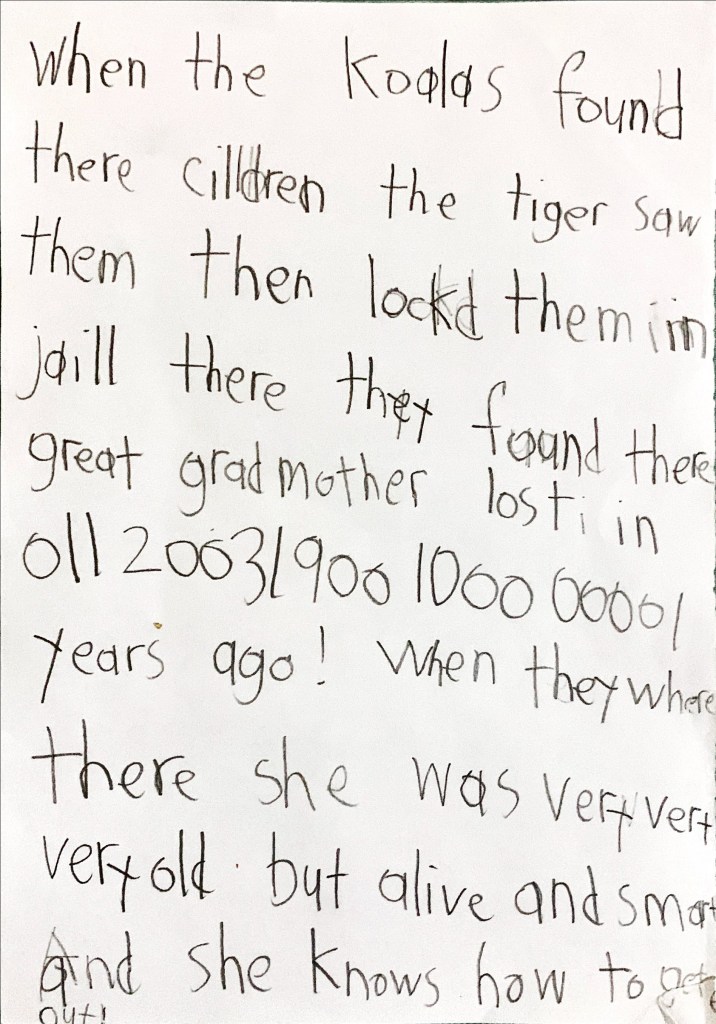 When the Koalas found
there cilldren the tiger saw
them then lockd them iin
jaill there they found there
great gradmother lost in
oll 20031900 1000 00001
years ago! When they where
there she was very very
very old but alive and smart
and she knows how to get
out!